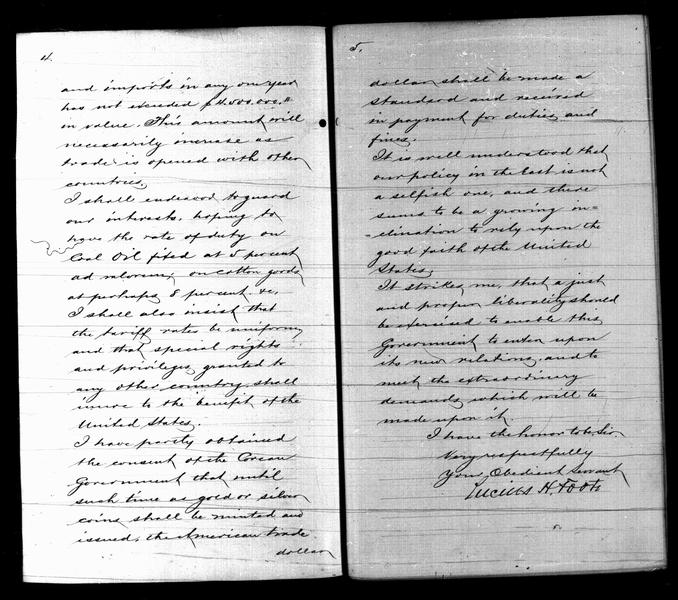 4.
and imports in any one year
has not exceeded $4.500.000.00
in value. This amount will
necessarily increase as
trade is opened with other
countries.
I shall endeavor to guard
our interests, hoping to
have the rate of duty on
Coal Oil fixed at 5 percent
ad valorem, on cotton goods
at perhaps 8 percent. &c,
I shall also insist that
the tariff rates be uniform
and that special rights
and privileges granted to
any other country, shall
inure to the benefit of the
United States.
I have partly obtained
the consent of the Corean
Government that until
such time as gold or silver
coins shall be minted and
issued, the American trade
dollar
5.
dollar shall be made a
standard and received
in payment for duties and
fines.
It is well understood that
our policy in the East is not
a selfish one, and there
seems to be a growing in=
=clination to rely upon the
good faith of the United
States.
It strikes me, that a just
and proper liberality should
be exercised to enable this
Government to enter upon
its new relations, and to
meet the extraordinary
demands which will be
made upon it.
I have the honor to be, Sir,
Very respectfully
Your Obedient Servant
Lucius H. Foote